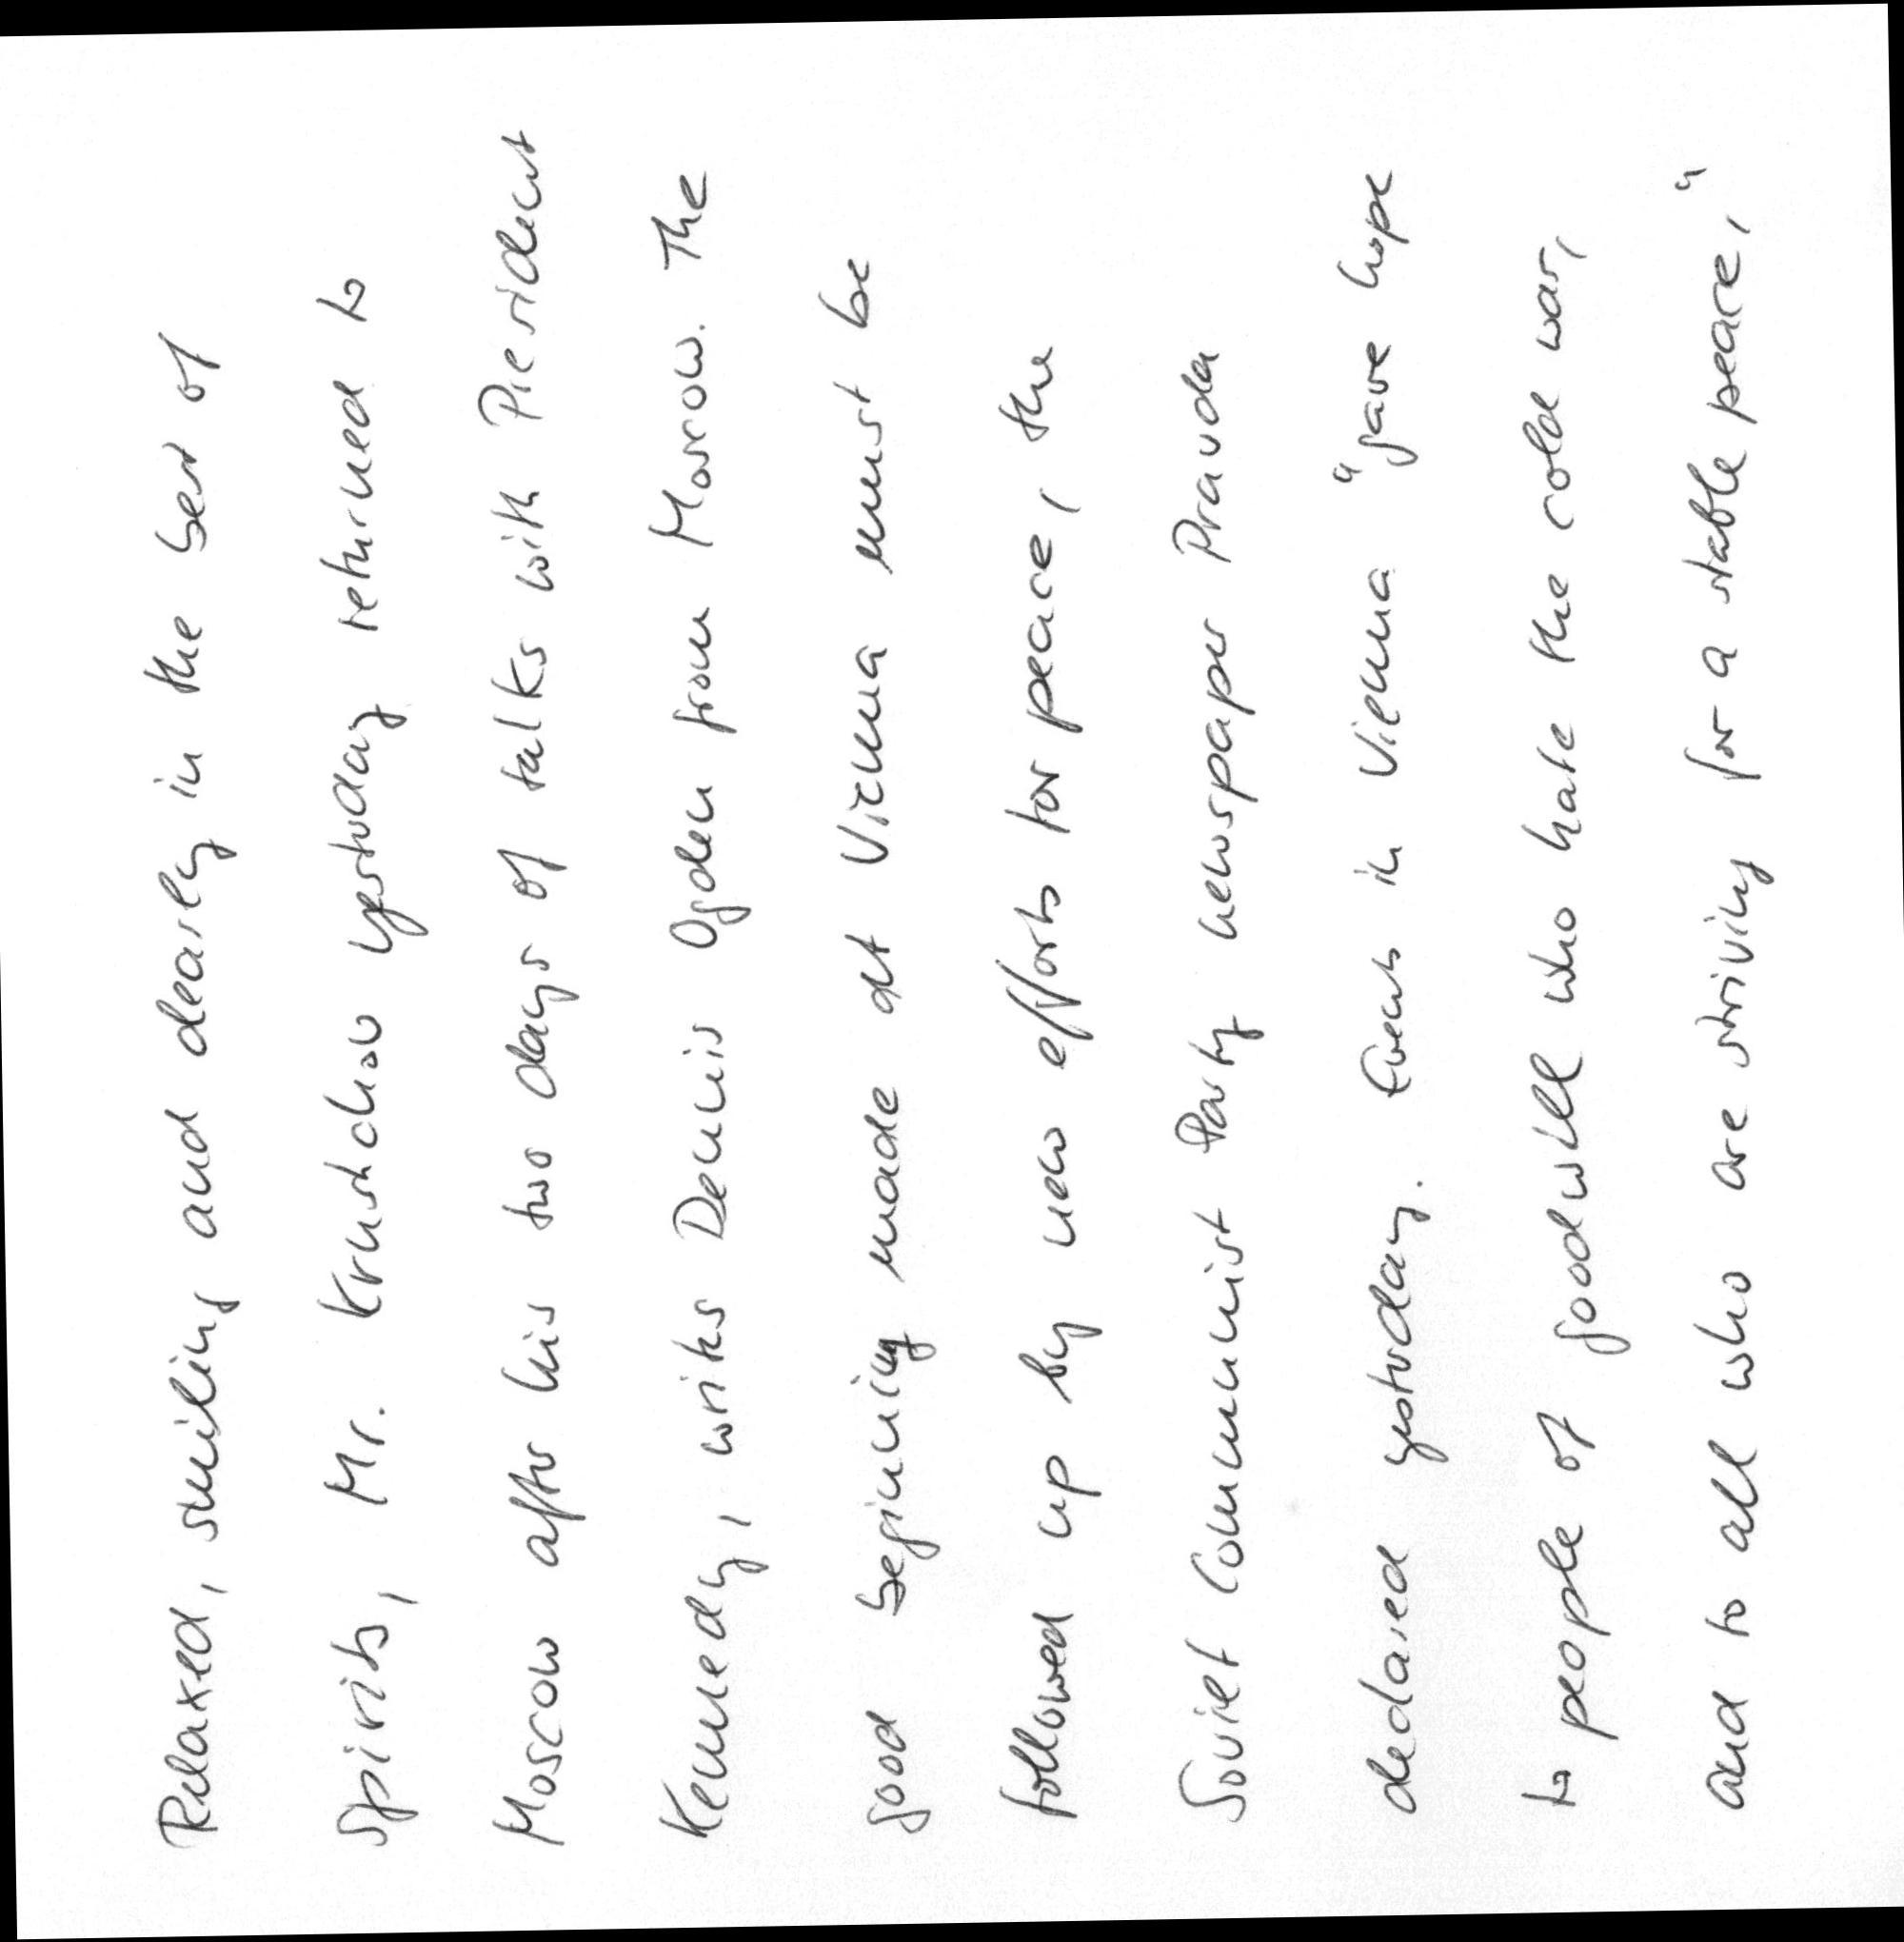 Relaxed, smiling and clearly in the best of
Spirits, Mr. Krushchov yesterday returned to
Moscow after his two days of talks with President
Kennedy, writes Dennis Ogden from Moscow. The
good beginning made at Vienna must be
followed up by new efforts for peace, the
Soviet Communist Party newspaper Pravda
declared yesterday. Events in Vienna "gave hope
to people of goodwill who hate the cold war,
and to all who are striving for a stable peace,"